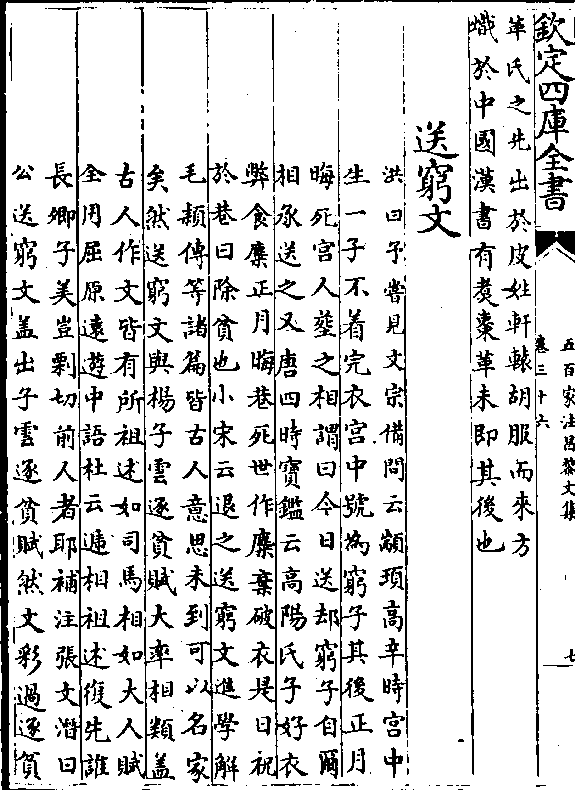 欽定四庫全書
五百家注昌黎文集
卷三十六
七
革氏之先出於皮姓軒轅胡服而來方
熾於中國漢書有煑棗革朱即其後也
送窮文
洪曰予嘗見文宗備問云顓頊高辛時宮中
生一子不着完衣宮中號為窮子其後正月
晦死宮人塟之相謂曰今日送却窮子自爾
相承送之又唐四時寳鑑云高陽氏子好衣
弊食糜正月晦巷死世作糜棄破衣是日祝
於巷曰除貧也小宋云退之送窮文進學解
毛頴傳等諸篇皆古人意思未到可以名家
矣然送窮文與楊子雲逐貧賦大率相類盖
古人作文皆有所祖述如司馬相如大人賦
全用屈原逺遊中語杜云遞相祖述復先誰
長卿子美豈剽切前人者耶補注張文潛曰
公送窮文盖出子雲逐貧賦然文彩過逐貧